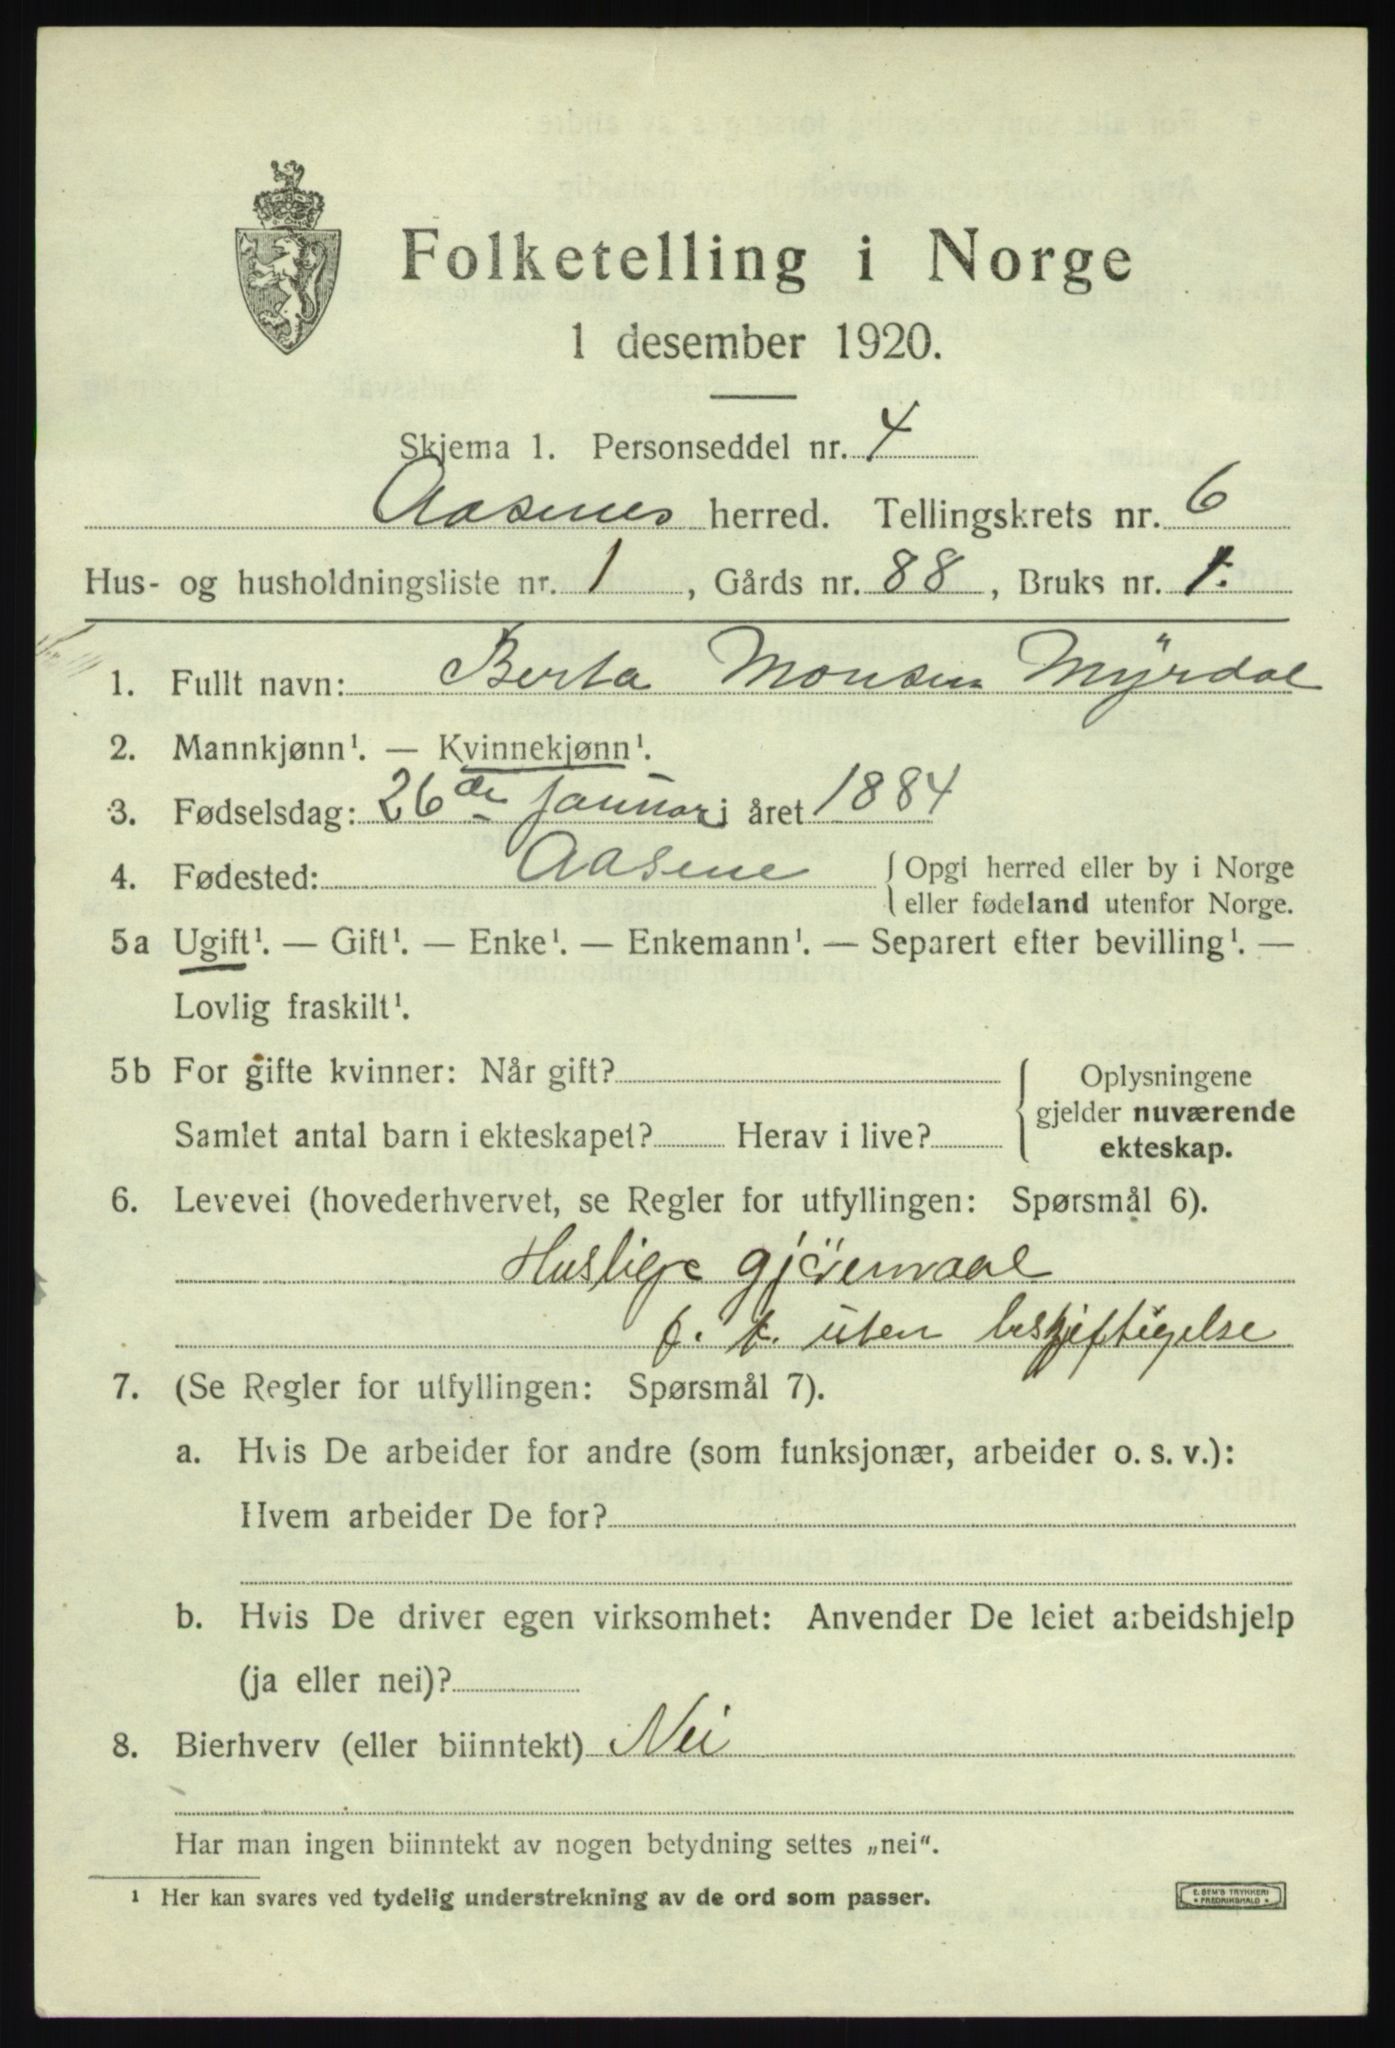 Folketelling i Norge
1 desember 1920.
Skjema 1. Personseddel nr. 4
Aasenes herred. Tellingskrets nr. 6
Hus- og husholdningsliste nr. 1, Gårds nr. 88, Bruks nr. 1.
1. Fullt navn: Berta Monsen Myrdal
2. Mannkjønn¹. — Kvinnekjønn¹.
3. Fødselsdag: 26de januari året 1884
4. Fødested: Aasene { Opgi herred eller by i Norge
eller fødeland utenfor Norge.
5a Ugift¹. — Gift¹. — Enke¹. — Enkemann¹. — Separert efter bevilling¹. —
Lovlig fraskilt¹.
5b For gifte kvinner: Når gift? { Oplysningene
gjelder nuværende
Samlet antal barn i ekteskapet? Herav i live?
ekteskap.
6. Levevei (hovederhvervet, se Regler for utfyllingen: Spørsmål 6).
Huslige gjøremaal
f. t. uten beskjeftigelse
7. (Se Regler for utfyllingen: Spørsmål 7).
a. Hvis De arbeider for andre (som funksjonær, arbeider o. s. v.):
Hvem arbeider De for?
b. Hvis De driver egen virksomhet: Anvender De leiet arbeidshjelp
(ja eller nei)?
8. Bierhverv (eller biinntekt) Nei
Har man ingen biinntekt av nogen betydning settes „nei".
¹ Her kan svares ved tydelig understrekning av de ord som passer.
E. SEM'S TRYKKERI
• FREDRIKSHALD •